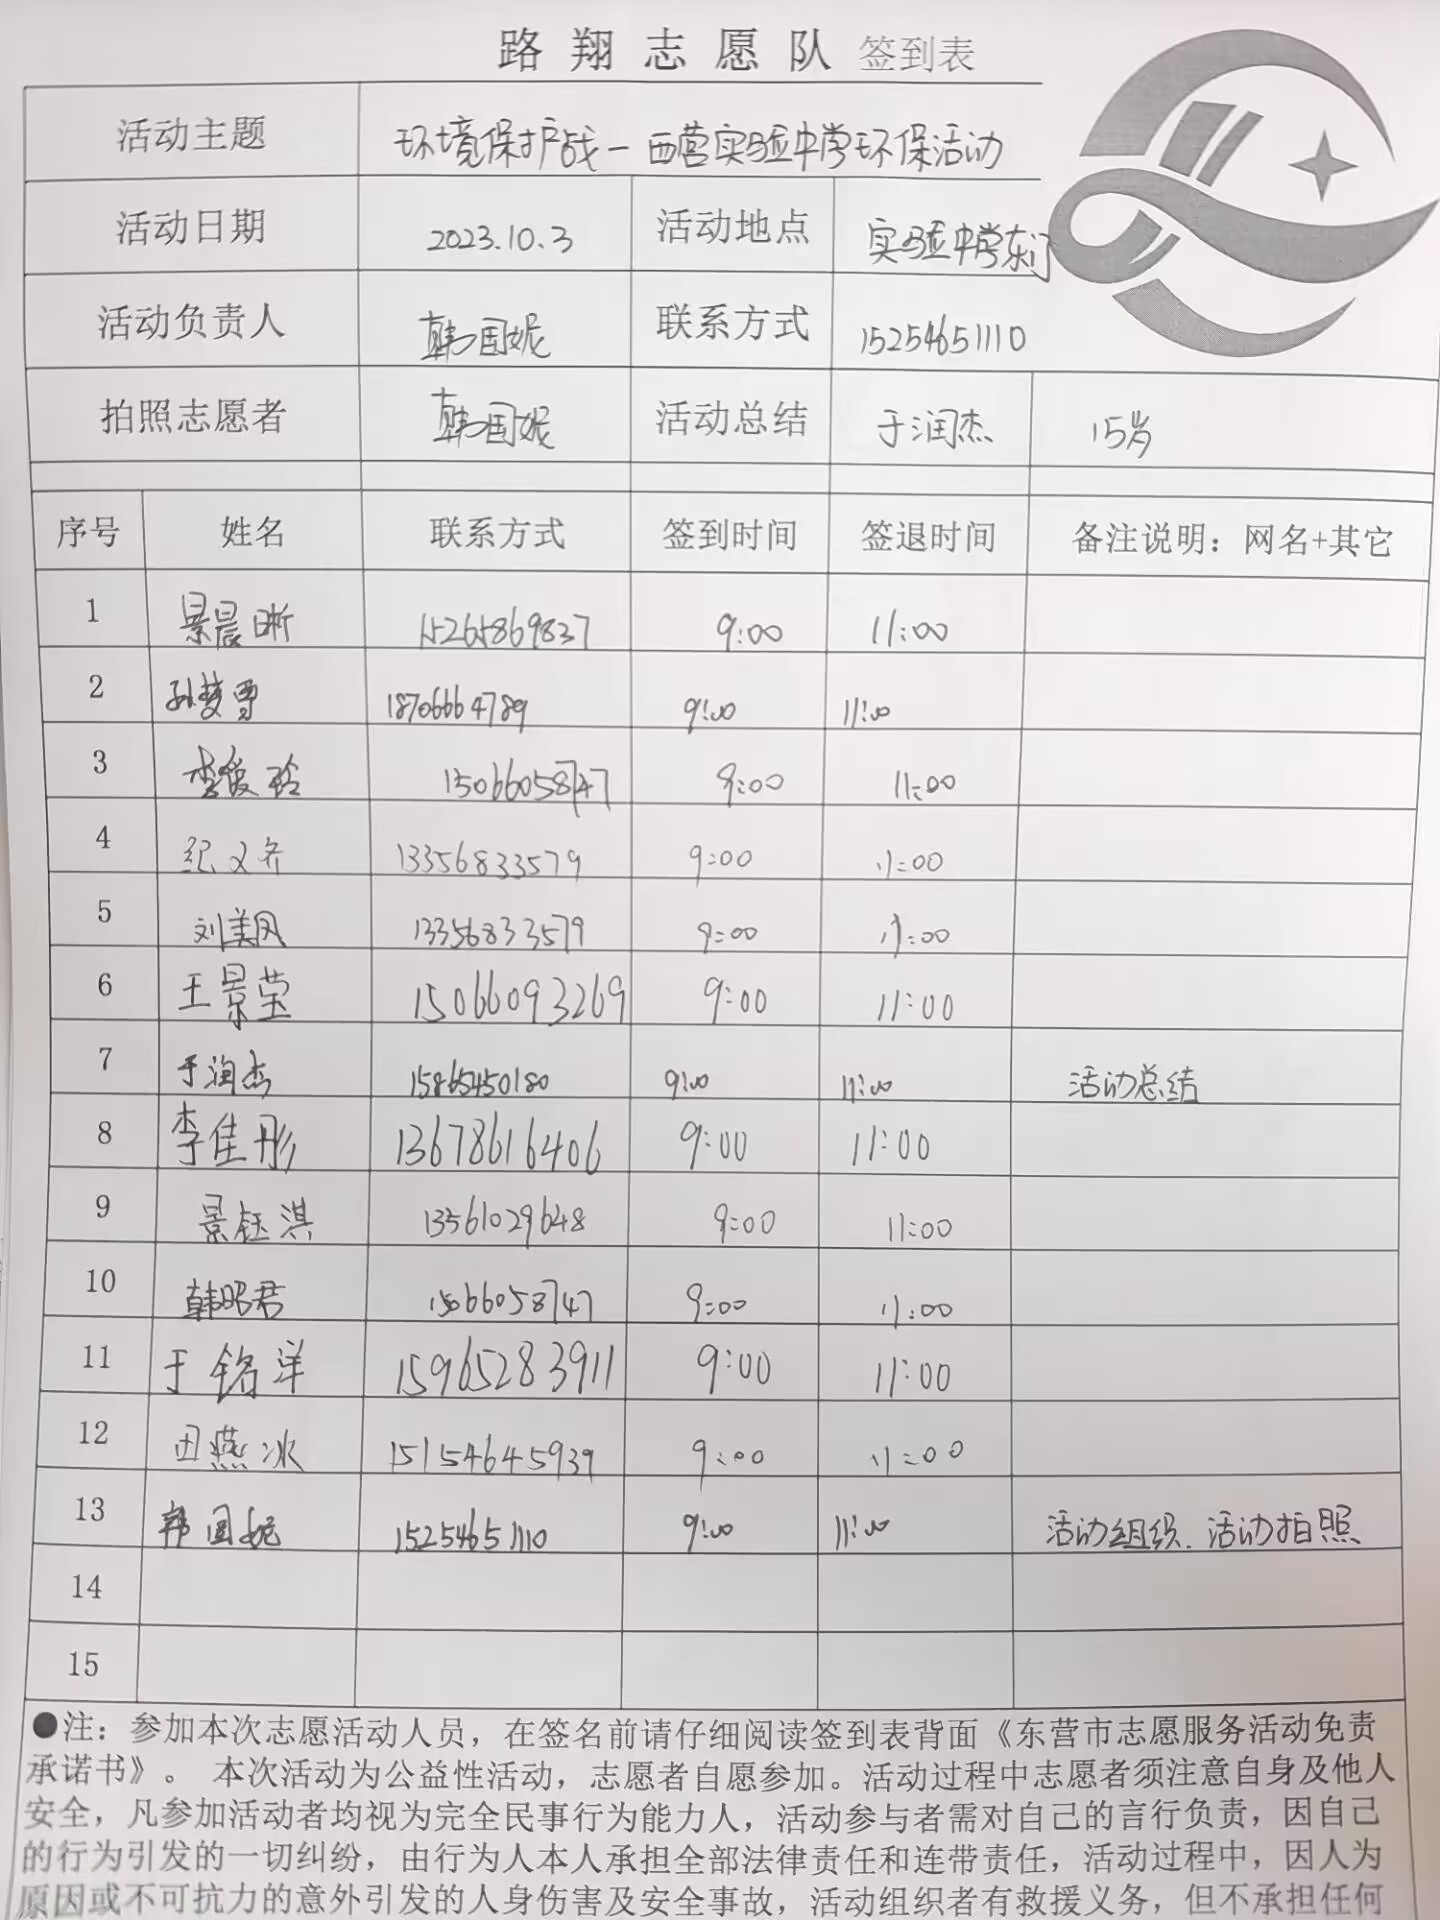 路翔志愿队 签到表
活动主题 环境保护战一西营实验中学环保活动
活动日期 2023.10.3 活动地点 实验中学东门
活动负责人 韩国妮 联系方式 15254651110
拍照志愿者 韩国妮 活动总结 于润杰 15岁
序号 姓名 联系方式 签到时间 签退时间 备注说明：网名+其它
1 景晨晰 15265869837 9:00 11:00
2 孙梦雪 18706664789 9:00 11:00
3 李俊玲 15066058747 9:00 11:00
4 纪义齐 13356833579 9:00 11:00
5 刘美凤 13356833579 9:00 11:00
6 王景莹 15066093269 9:00 11:00
7 于润杰 15865450180 9:00 11:00 活动总结
8 李佳彤 13678616406 9:00 11:00
9 景钰淇 13561029648 9:00 11:00
10 韩昭君 15066058747 9:00 11:00
11 于铭洋 15965283911 9:00 11:00
12 田燕冰 15154645939 9:00 11:00
13 韩国妮 15254651110 9:00 11:00 活动组织、活动拍照
14
15
●注：参加本次志愿活动人员，在签名前请仔细阅读签到表背面《东营市志愿服务活动免责
承诺书》。 本次活动为公益性活动，志愿者自愿参加。活动过程中志愿者须注意自身及他人
安全，凡参加活动者均视为完全民事行为能力人，活动参与者需对自己的言行负责，因自己
的行为引发的一切纠纷，由行为人本人承担全部法律责任和连带责任，活动过程中，因人为
原因或不可抗力的意外引发的人身伤害及安全事故，活动组织者有救援义务，但不承担任何